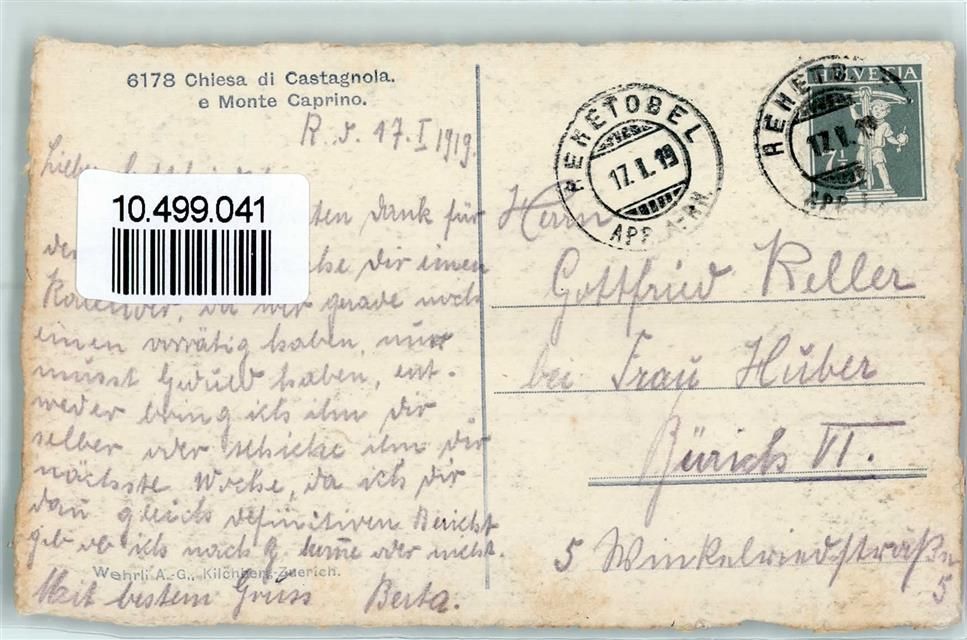 6178 Chiesa di Castagnola.
e Monte Caprino.
R. d. 17. I 1919.
10.499.041
Dank für
dir einen
Kalender, da wir gerade noch
einen vorrätig haben, nur
musst Geduld haben, ent-
weder bring ich ihn dir
selber oder schicke ihn dir
nächste Woche, da ich dir
dan gleich definitiven Bericht
geb ob ich nach Z komme oder nicht.
Wehrli A.-G., Kilchberg-Zuerich.
Mit bestem Gruss Berta.
REHETOBEL
17.I.19
HELVETIA
7½
REHETO
17.I.19
Herrn
Gottfried Keller
bei Frau Huber
Zürich VI.
5 Winkelriedstraße
5